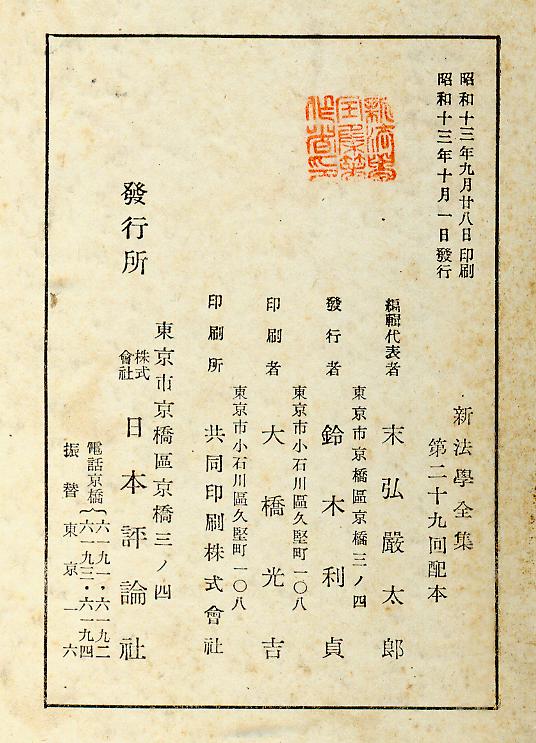 昭和十三年九月廿八日印刷
昭和十三年十月一日發行
新法學全集
第二十九回配本
編輯代表者 末弘嚴太郎
東京市京橋區京橋三ノ四
發行者 鈴木利貞
東京市小石川區久堅町一〇八
印刷者 大橋光吉
東京市小石川區久堅町一〇八
印刷所 共同印刷株式會社
發行所
東京市京橋區京橋三ノ四
株式會社 日本評論社
電話京橋{六一九一・六一九二
六一九三・六一九四
振替東京一六